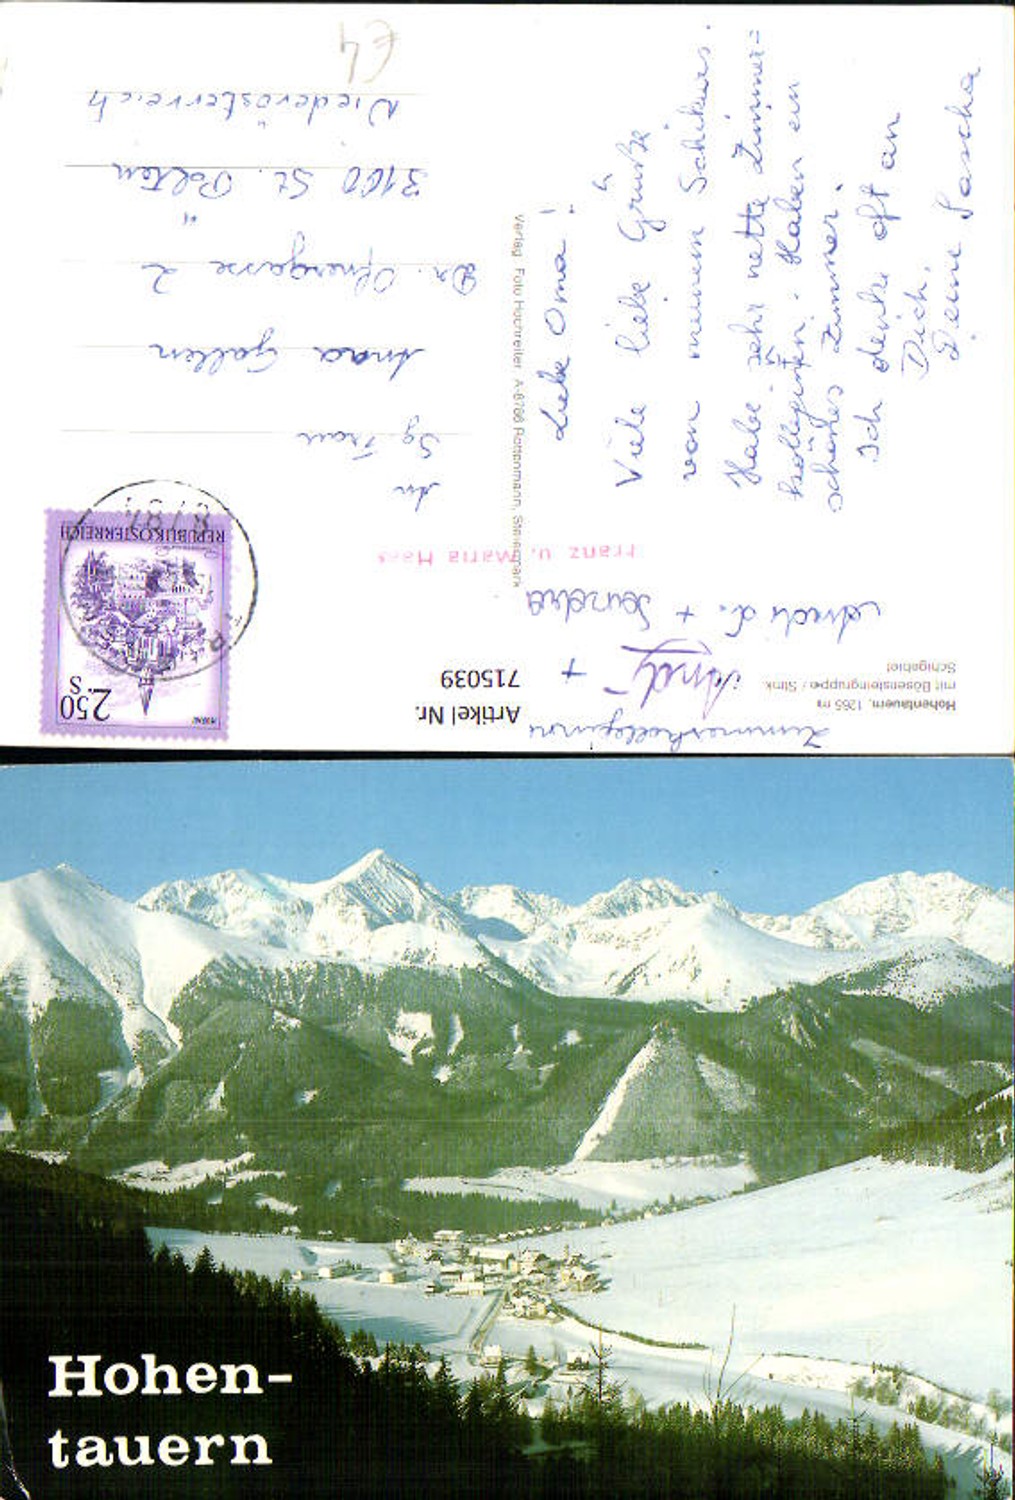 Liebe Oma!
Viele liebe Grüße
von meinem Schikurs.
Habe sehr nette Zimmer=
kolleginnen. Haben ein
schönes Zimmer.
Ich denke oft an
Dich.
Deine Sascha
Zimmerkolleginnen
Andy +
+ Sandra
Hohentauern, 1265 m
mit Bösensteingruppe / Stmk.
Schigebiet
Artikel Nr.
715039
Franz u. Maria Haas
Verlag Foto Hochreiter, A-8786 Rottenmann, Steiermark
2.50
S
MURAU
REPUBLIK ÖSTERREICH
8784
An
Sg. Frau
Anna Gallen
Dr. Ofnergasse 2
3100 St. Pölten
Niederösterreich
€4
Hohen-
tauern